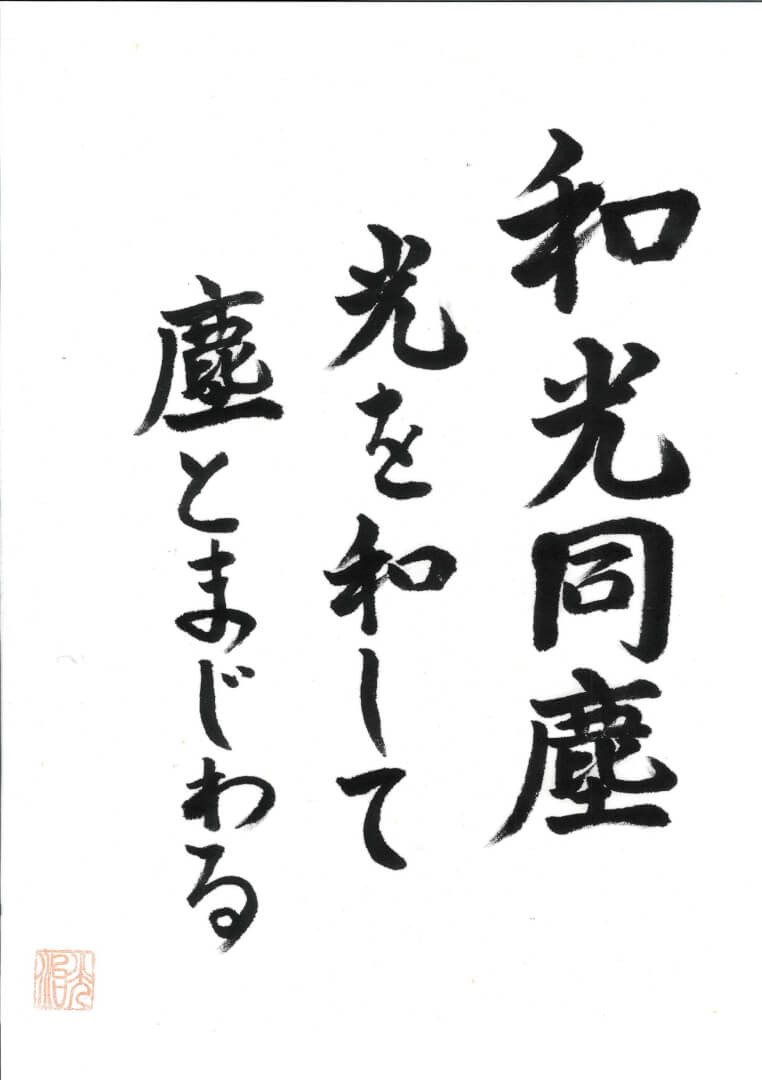 和光同塵
光を和して
塵とまじわる